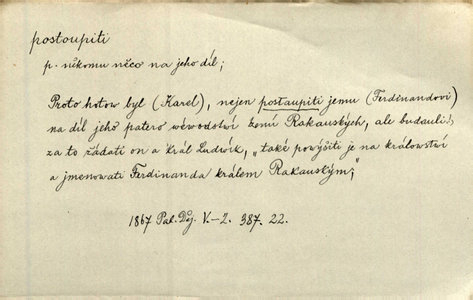 postoupiti
p. někomu něco na jeho díl;
Proto hotow byl (Karel), nejen postaupiti jemu (Ferdinandovi)
na díl jeho patero wéwodství zemí Rakauských, ale budauli
za to žádati on a král Ludwík, "také powýšiti je na králowství
a jmenowati Ferdinanda králem Rakauským;"
1867 Pal. Děj. V.–2. 387. 22.